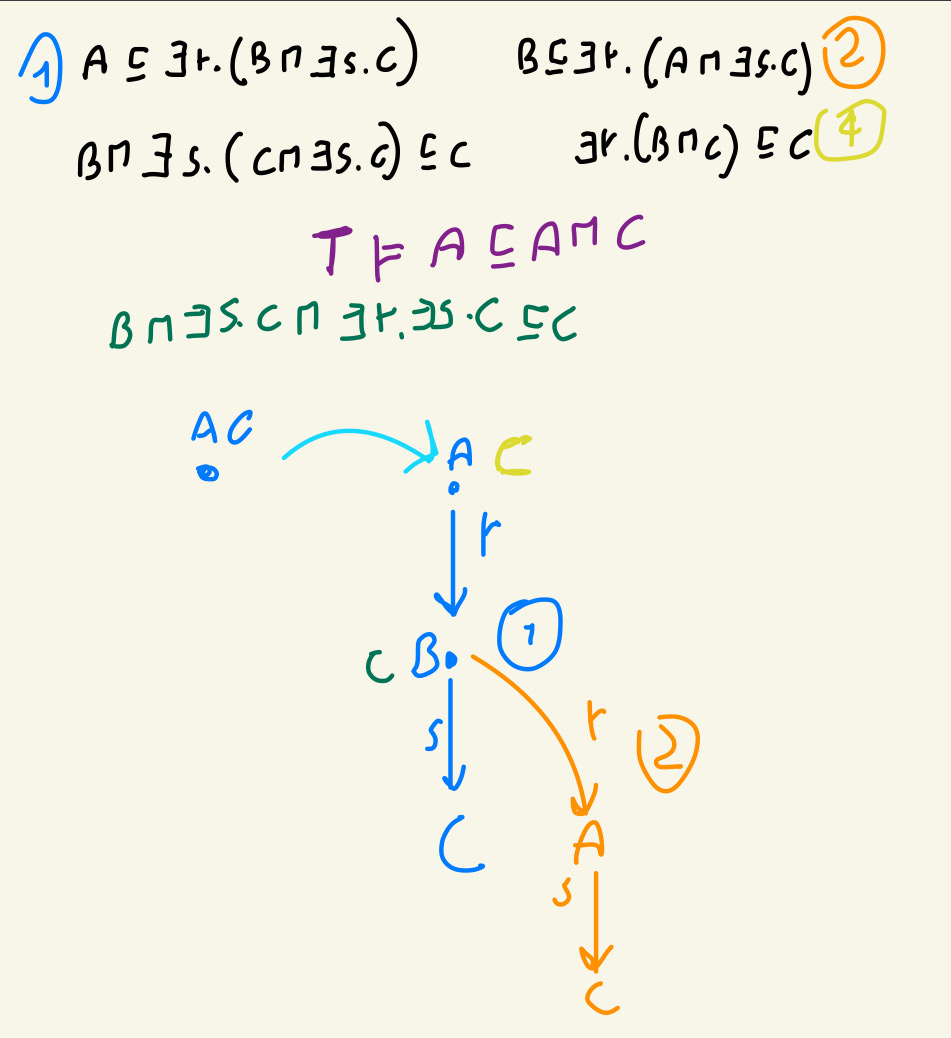 1 A ⊑ ∃r.(B ⊓ ∃s.C) B ⊑ ∃r.(A ⊓ ∃s.C) 2
B ⊓ ∃s.(C ⊓ ∃s.C) ⊑ C ∃r.(B ⊓ C) ⊑ C 4
T ⊨ A ⊑ A ⊓ C
B ⊓ ∃s.C ⊓ ∃r.∃s.C ⊑ C
A C
A C
r
1
C B
r
s 2
C A
s
C